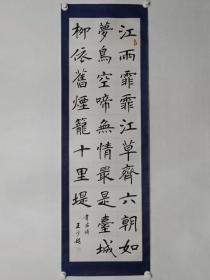 江雨霏霏江草齊六朝如
夢鳥空啼無情最是臺城
柳依舊煙籠十里堤